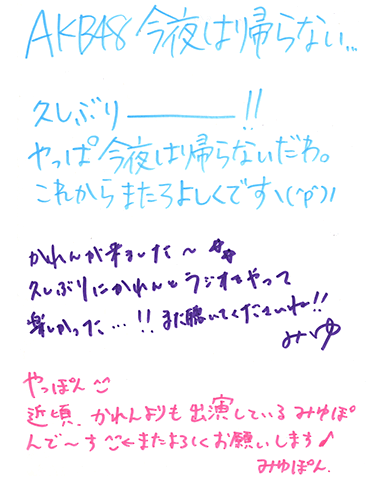 AKB48 今夜は帰らない...
久しぶり────!!
やっぱ今夜は帰らないだわ。
これからまたろよしくですヽ(^p^)ノ
かれんが来ました〜☆☆
久しぶりにかれんとラジオをやって
楽しかった…!!また聴いてくださいねー!!
みゆ
やっぽん
近頃、かれんよりも出演しているみゆぽ
んで〜す←またよろしくお願いします♪
みゆぽん.